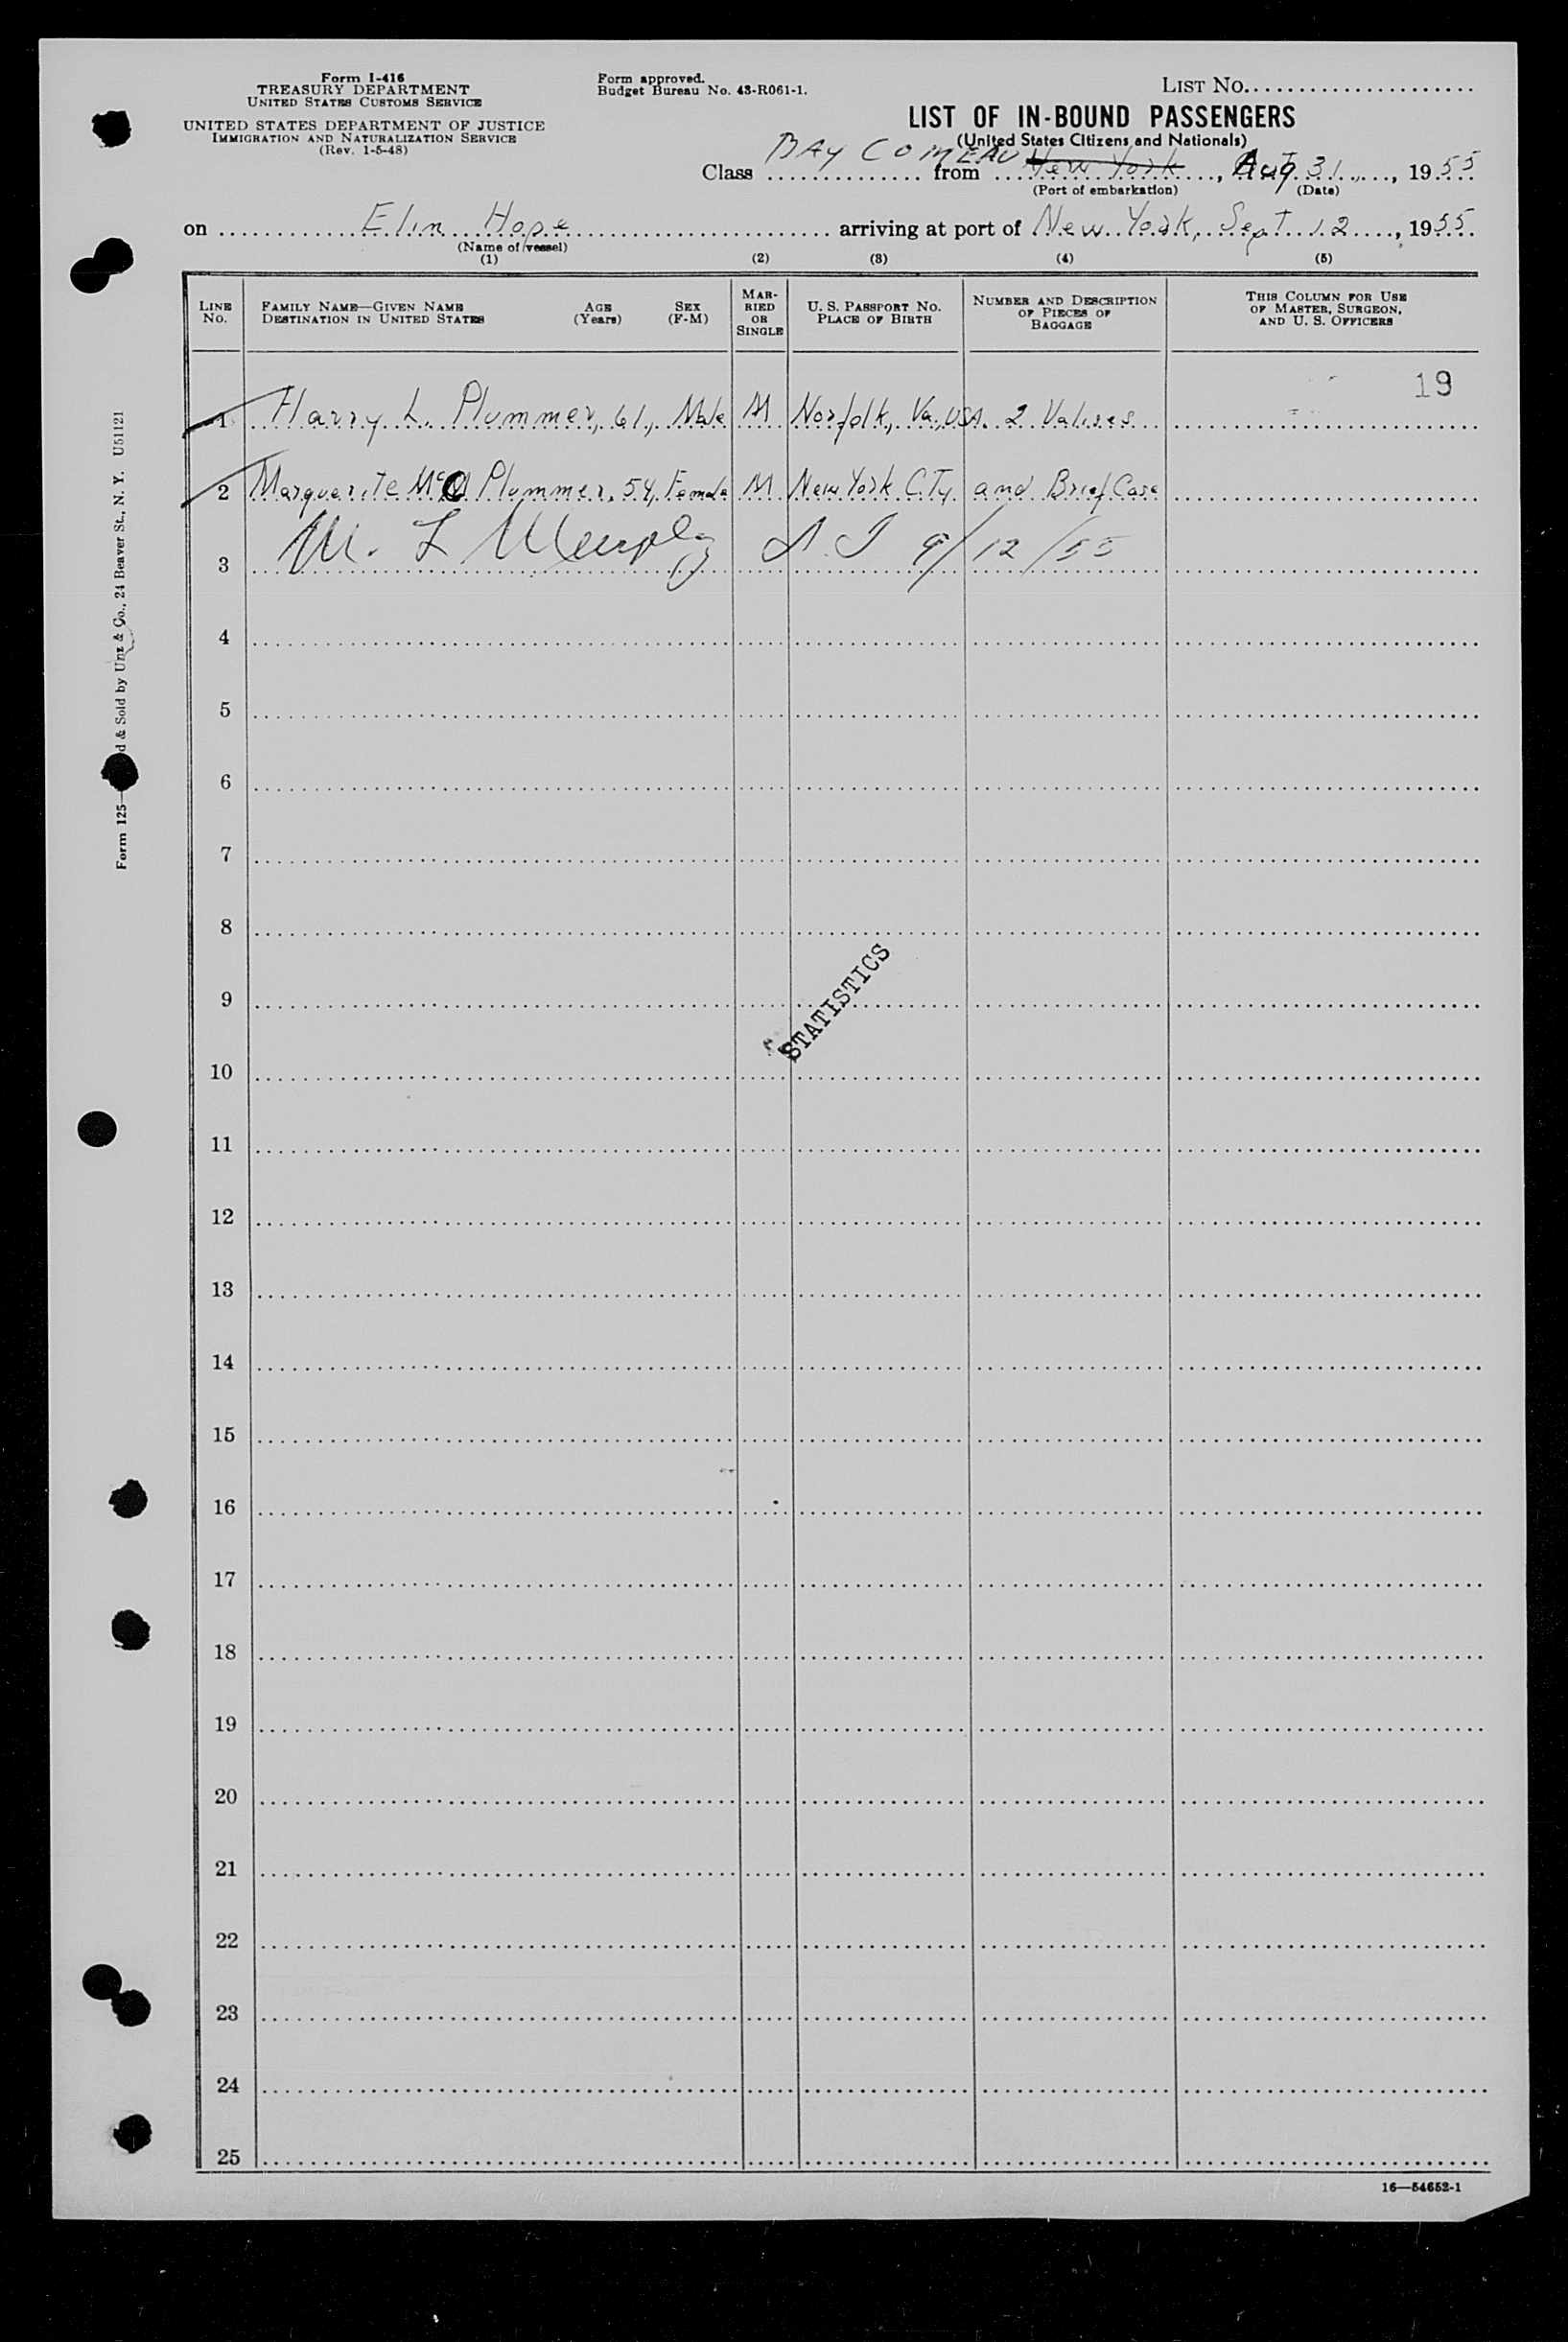 Form I-416
TREASURY DEPARTMENT
UNITED STATES CUSTOMS SERVICE
UNITED STATES DEPARTMENT OF JUSTICE
IMMIGRATION AND NATURALIZATION SERVICE
(Rev. 1-5-48)
Form approved.
Budget Bureau No. 43-R061-1.
LIST No.
LIST OF IN-BOUND PASSENGERS
(United States Citizens and Nationals)
BAY COMEAU
Class from New York, Aug 31, 1955
(Port of embarkation) (Date)
on Elin Hope arriving at port of New York, Sept 12, 1955
(Name of vessel)
(1) (2) (3) (4) (5)
LINE No. FAMILY NAME—GIVEN NAME DESTINATION IN UNITED STATES AGE (Years) SEX (F-M) MARRIED OR SINGLE U. S. PASSPORT No. PLACE OF BIRTH NUMBER AND DESCRIPTION OF PIECES OF BAGGAGE THIS COLUMN FOR USE OF MASTER, SURGEON, AND U. S. OFFICERS
19
1 Harry L. Plummer, 61, Male M Norfolk, Va., USA. 2 Valises
2 Marguerite Plummer, 54, Female M New York City and Brief Case
3 M. L Murphy 9/12/55
4
5
6
7
8
STATISTICS
9
10
11
12
13
14
15
16
17
18
19
20
21
22
23
24
25
16—54652-1
Form 125— d & Sold by Unz & Co., 24 Beaver St., N. Y. U51121